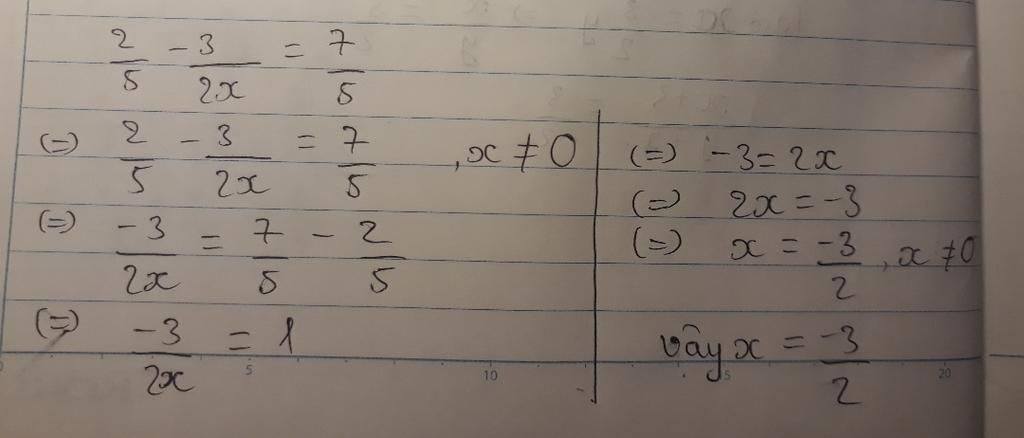 2/5 - 3/2x = 7/5
(=) 2/5 - 3/2x = 7/5 , x ≠ 0
(=) -3/2x = 7/5 - 2/5
(=) -3/2x = 1
(=) -3 = 2x
(=) 2x = -3
(=) x = -3/2 , x ≠ 0
vây x = -3/2
5 10 15 20